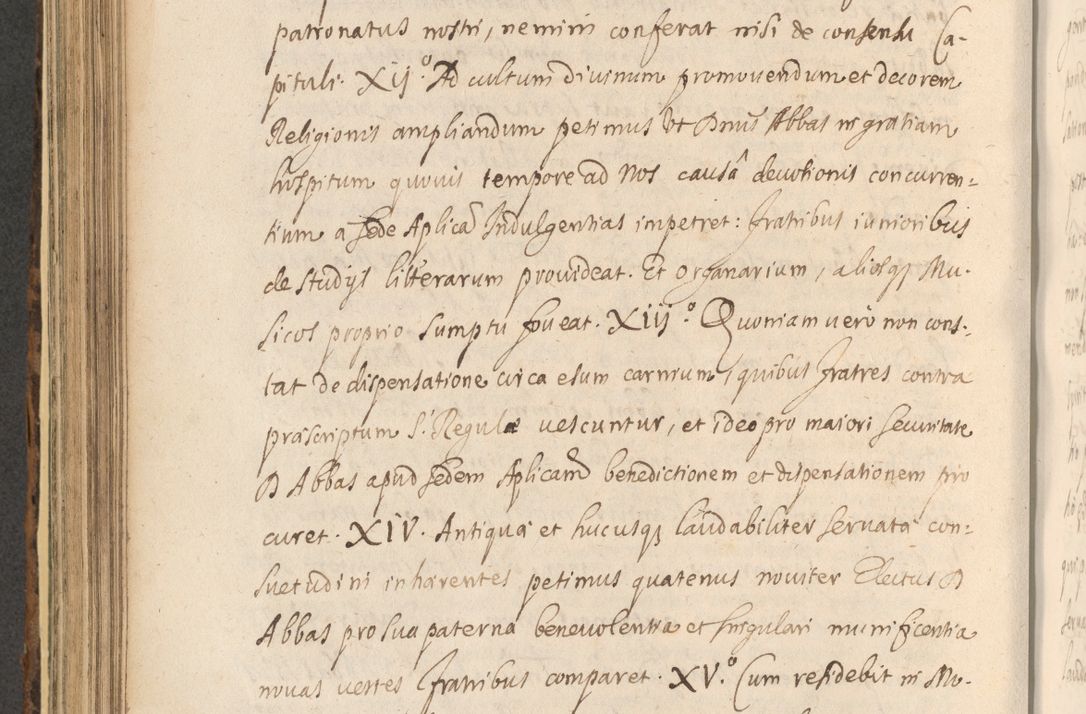 patronatus nostri, nemini conferat nisi de consensu Ca-
pituli. XIJ.º Ad cultum divinum promovendum et decorem
Religionis ampliandum petimus Ut Dnus Abbas in gratiam
hospitum quovis tempore ad Nos causâ devotionis concurren-
tium a Sede Aplica Indulgentias impetret: Fratribus iunioribus
de studijs litterarum provideat. Et Organarium, aliosq; Mu-
sicos proprio sumptu foveat. XIIJ.º Quoniam verò non cons-
tat de dispensatione circa esum carnium, quibus Fratres contra
præscriptum S. Regulæ vescuntur, et ideo pro maiori securitate
D Abbas apud sedem Aplicam benedictionem et dispensationem pro
curet. XIV. Antiqua et hucusq; laudabiliter servata con-
suetudini inhærentes petimus quatenus noviter Electus D
Abbas pro sua paterna benevolentia et singulari munificentia
novas vestes Fratribus comparet. XV.º Cum residebit in Mo-